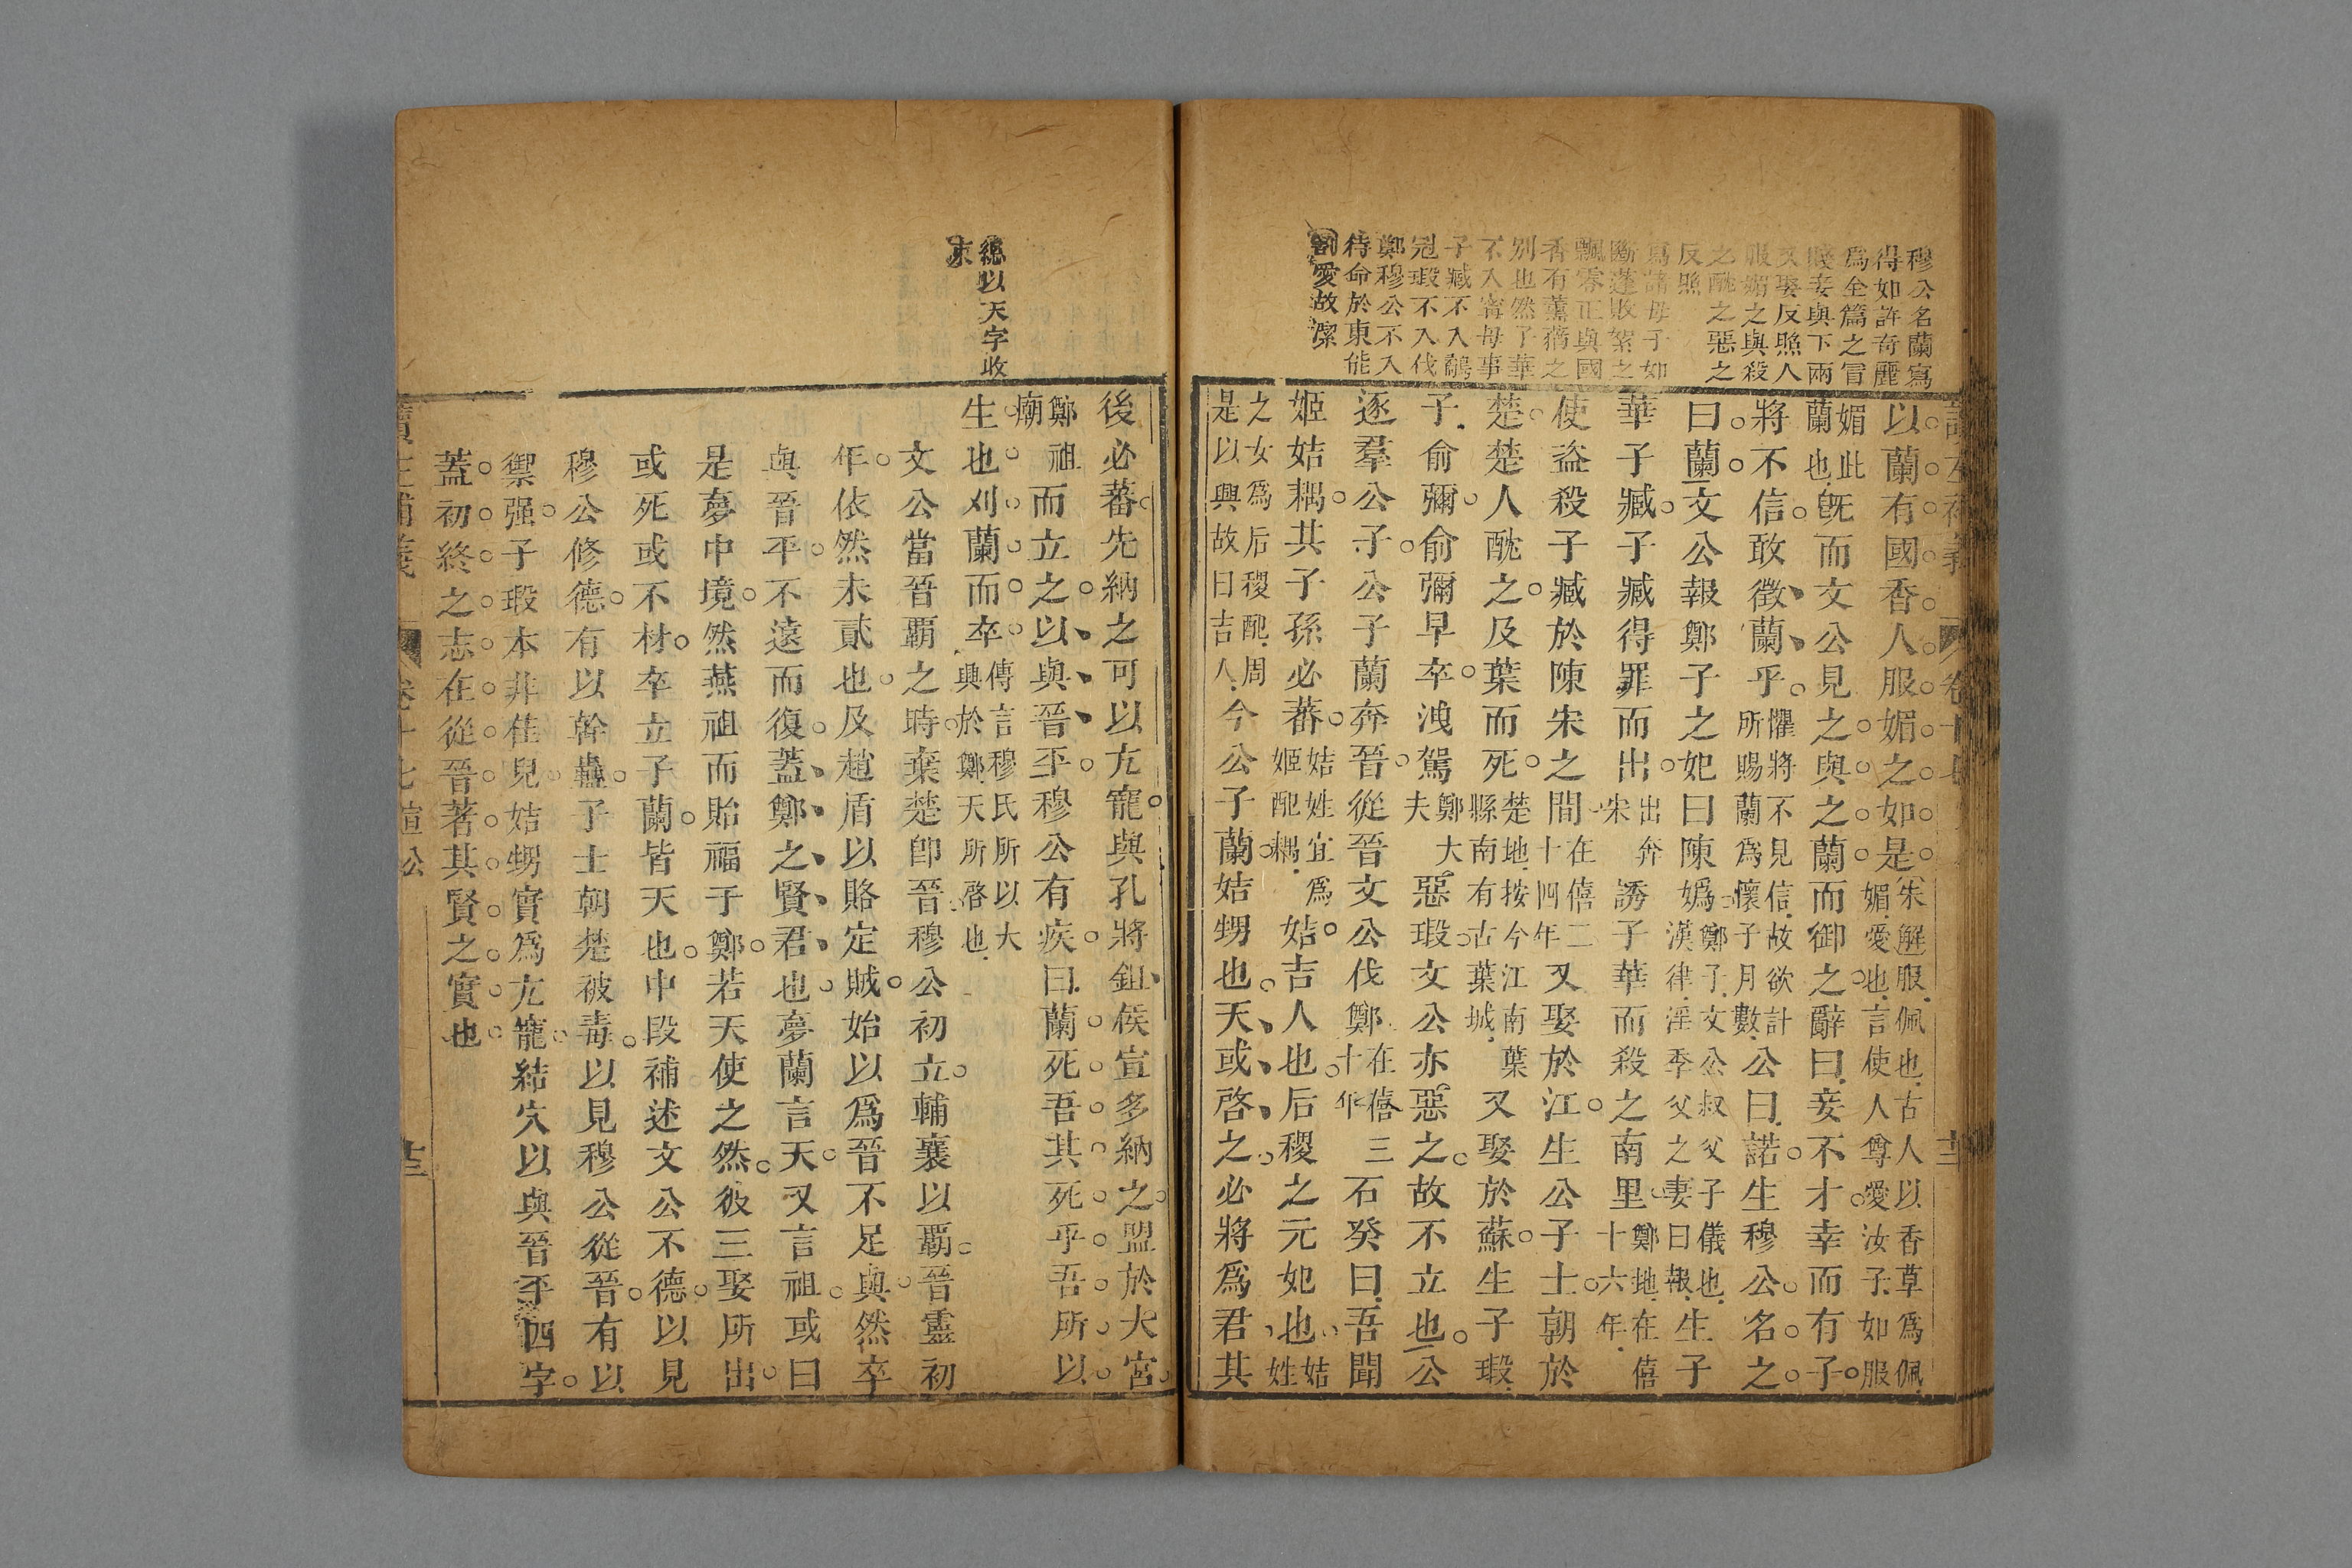 穆公名蘭寫
得如許奇麗
爲全篇之冒
賤妾與下兩
又娶反照人
服媚之與殺
之酖之惡之
反照
寫諸母子如
斷蓬敗絮之
飄零正與國
香有薰蕕之
別也然子華
不入甯母事
子臧不入鷸
冠瑕不入伐
鄭穆公不入
待命於東能
割愛故潔
以蘭有國香人服媚之如是朱解服佩也古人以香草爲佩媚愛也言使人尊愛汝子如服
媚此蘭也既而文公見之與之蘭而御之辭曰妾不才幸而有子
將不信敢徵蘭乎懼將不見信故欲計所賜蘭爲懷子月數公曰諾生穆公名之
曰蘭文公報鄭子之妃曰陳嬀鄭子文公叔父子儀也漢律淫季父之妻曰報生子
華子臧子臧得罪而出出奔宋誘子華而殺之南里鄭地在僖十六年
使盜殺子臧於陳宋之間在僖二十四年又娶於江生公子士朝於
楚楚人酖之及葉而死楚地按今江南葉縣南有古葉城又娶於蘇生子瑕
子俞彌俞彌早卒洩駕鄭大夫惡瑕文公亦惡之故不立也公
逐羣公子公子蘭奔晉從晉文公伐鄭在僖三十年石癸曰吾聞
姬姞耦其子孫必蕃姞姓宜爲姬配耦姞吉人也后稷之元妃也姞姓
之女爲后稷配周是以興故曰吉人今公子蘭姞甥也天或啓之必將爲君其
總以天字收
束
後必蕃先納之可以亢寵與孔將鉏侯宣多納之盟於大宮
鄭祖廟而立之以與晉平穆公有疾曰蘭死吾其死乎吾所以
生也刈蘭而卒傳言穆氏所以大興於鄭天所啓也
文公當晉霸之時棄楚即晉穆公初立輔襄以霸晉靈初
年依然未貳也及趙盾以賂定賊始以爲晉不足與然卒
與晉平不遠而復蓋鄭之賢君也夢蘭言天又言祖或曰
是夢中境然燕祖而貽福子鄭若天使之然彼三娶所出
或死或不材卒立子蘭皆天也中段補述文公不德以見
穆公修德有以幹蠱子士朝楚被毒以見穆公從晉有以
禦强子瑕本非佳兒姞甥實爲亢寵結穴以與晉平四字
蓋初終之志在從晉著其賢之實也
讀左補義 卷十七 宣公 十三